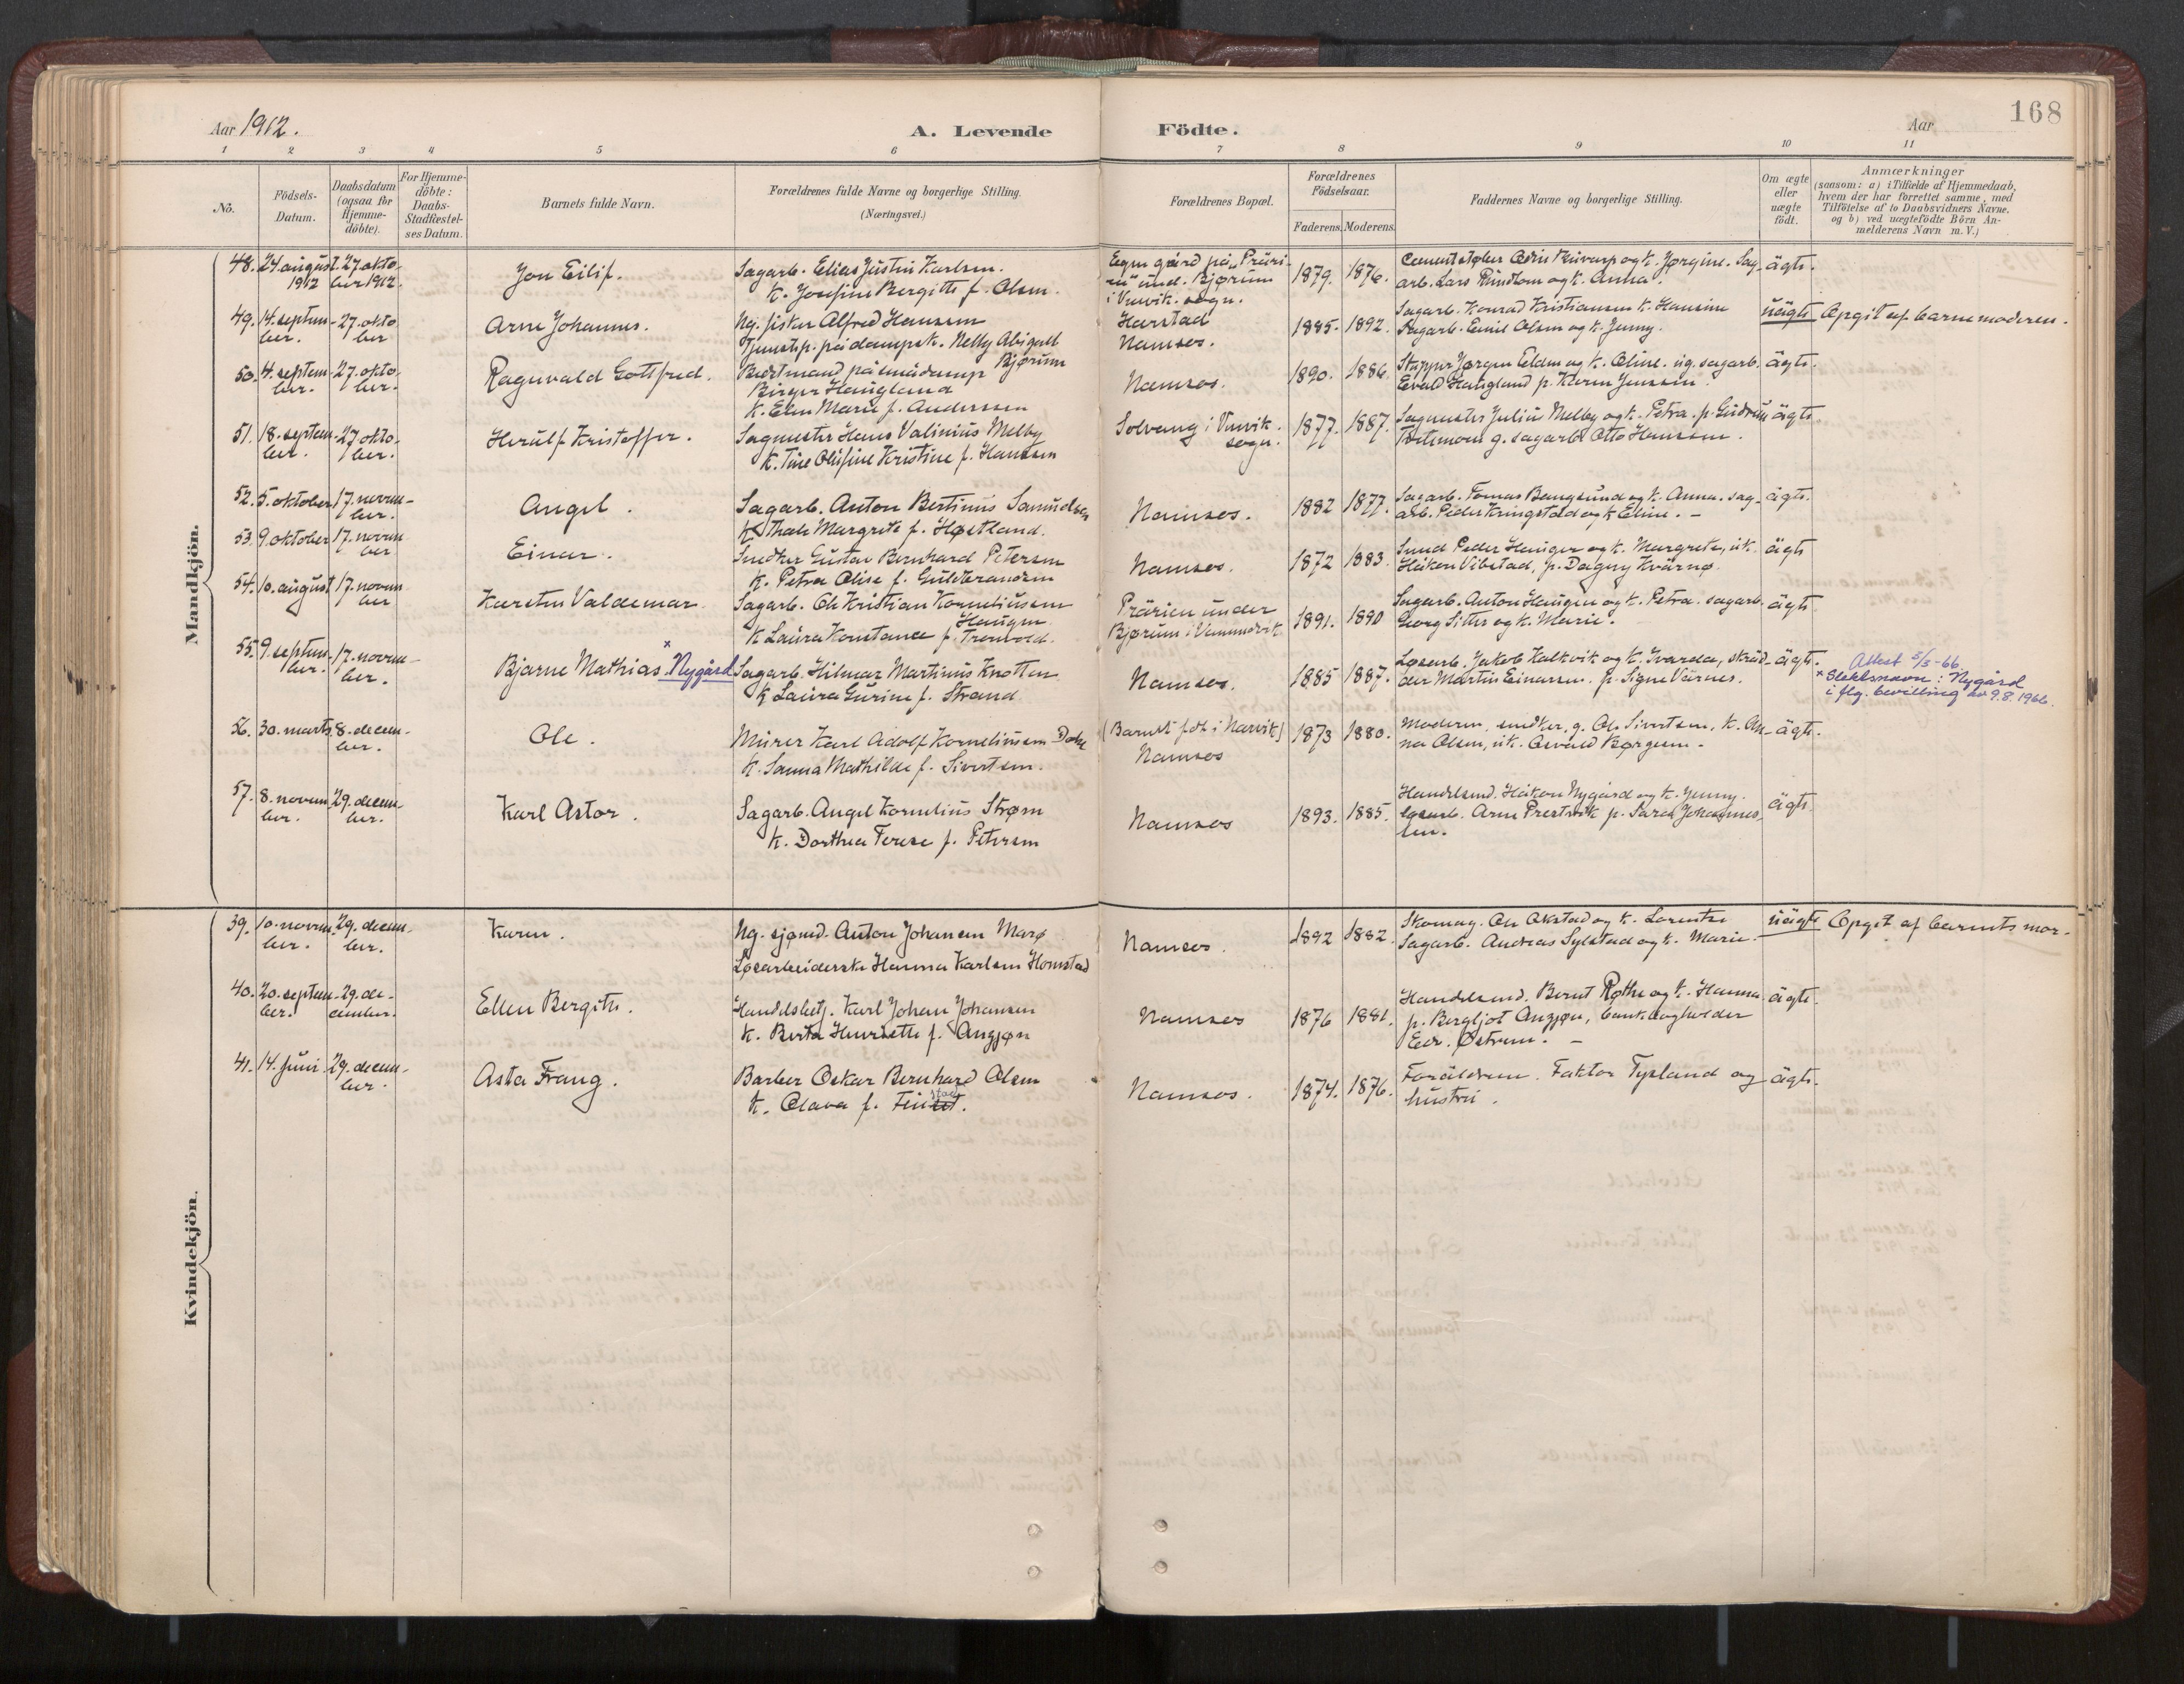 168
Aar 1912.
A. Levende
Födte.
Aar
1 2 3 4 5 6 7 8 9 10 11
No.
Födsels-
Datum.
Daabsdatum
(ogsaa for
Hjemme-
döbte).
For Hjemme-
döbte:
Daabs-
Stadfæstel-
ses Datum.
Barnets fulde Navn.
Forældrenes fulde Navne og borgerlige Stilling.
(Næringsvei.)
Forældrenes Bopæl.
Forældrenes
Födselsaar.
Faderens. Moderens.
Faddernes Navne og borgerlige Stilling.
Om ægte
eller
uægte
födt.
Anmærkninger
(saasom: a) i Tilfælde af Hjemmedaab,
hvem der har forrettet samme, med
Tilföielse af to Daabsvidners Navne,
og b) ved uægtefödte Börn An-
melderens Navn m. V.)
Mandkjön.
48. 24 august 27. okto-
1912 ber 1912.
Jon Eilif.
Sagarb. Elias Justin Karlsen.
k. Josefine Bergitte f. Olsen.
Egen gård på „Präri-
en" und. Bjørum
i Vemvik. sogn.
1879. 1876.
og k. Jørgine. Sag-
arb. Lars og k. Anna.
ägte.
49. 14. septem- 27. okto
ber. ber
Arne Johannes.
Ug. fisker Alfred Hansen
Tjenestep. på dampsk. Nelly Abigael
Bjørum
Harstad
Namsos.
1885. 1892.
Sagarb. Konrad Kristiansen k. Hansine
Sagarb. Emil Olsen og k. Jenny.
uägte Opgit af barnemoderen.
50. 4. septem- 27. okto-
ber. ber.
Ragnvald Gottfred.
Bestmand på
Birger Haugland
k. Elen Marie f. Anderssen
Namsos.
1890. 1886.
Jørgen Elden og k. Oline. ug. sagarb.
Evald Haugland p. Karen Jenssen.
ägte.
51. 18. septem- 27 okto-
ber. ber.
Herulf Kristoffer.
Sagmester Hans Valinius Melby
k. Tine Olufine Kristine f. Hansen
Solvang i Vemvik.
sogn.
1877. 1887.
Sagmester Julius Melby og k. Petra. p. Gudrun
g. sagarb. Otto Hanssen.
ägte.
52. 5. oktober 17. novem-
ber.
Angel.
Sagarb. Anton Bertinus Samuelsen
k. Thale Margrete f. Høstland.
Namsos.
1882 1877.
Sagarb. Tomas Bangsund og k. Anna. sag-
arb. Peder Kringstad og k Eline. -
ägte.
53. 9. oktober 17. novem
ber
Einar.
Snedker Gustav Bernhard Petersen
k. Petra Olise f. Guldbrandsen
Namsos.
1872 1883.
Smed Peder Hauger og k. Margrete, uk.
Håkon Vibstad, p. Dagny Kvärnø.
ägte
54. 10. august 17. novem
ber
Karsten Valdemar
Sagarb. Ole Kristian Korneliussen
Haugen
k Laura Konstance f. Trenvold.
Prärien under
Bjørum i Vemundvik
1891. 1890
Sagarb. Anton Haugen og k. Petra. sagarb.
Georg og k. Marie.
ägte
55. 9. septem- 17. novem-
ber. ber.
Bjarne Mathias × Nygård
Sagarb. Hilmar Martinus Knotten
k Laura Gurine f. Strand
Namsos.
1885 1887.
Løsarb. Jakob Kalkvik og k. Ivarda, skräd-
der Martin Einarsen. p. Signe Värnes.
ägte.
Attest 5/5-66.
× Slektsnavn: Nygård
i flg. bevilling av 9.8.1966.
56. 30. marts 8. decem-
ber.
Ole.
Murer Karl Adolf Korneliussen Dahl
k. Sanna Mathilde f. Sivertsen.
(Barnet født i Narvik)
Namsos
1873 1880.
Moderen, snedker, g. Ole Sivertsen, k. An-
na Olsen, uk. Osvald Børgesen.
ägte.
57. 8. novem 29. decem-
ber. ber.
Karl Astor.
Sagarb. Angel Kornelius Strøm
k. Dorthea Terese f. Petersen
Namsos
1893. 1885.
Handelsmd. Håkon Nygård og k. Jenny.
Løsarb. Arne Prestvik p. Sara Johannes-
sen.
ägte.
Kvindekjön.
39. 10. novem 29. decem-
ber. ber.
Karen.
Ug. sjømd. Anton Johansen Marø
Løsarbeiderske Hanna Karlsen Homstad
Namsos.
1892 1882.
Skomag. Ole Okstad og k. Lorentse
Sagarb. Andreas Sylstad og k. Marie.
uägte Opgit af barnets mor.
40. 20. septem- 29. de-
ber. cember.
Ellen Bergithe.
Handelsbetj. Karl Johan Johansen
k. Berta Henriette f. Angjøn
Namsos
1876 1881.
Handelsmd. Bernt Røthe og k. Hanna
p. Bergljot Angjøn, bankbogholder
Edv. Østrem. -
ägte.
41. 14. juni 29. decem-
ber.
Asta Frang.
Barber Oskar Bernhard Olsen
k. Olava f.
Namsos.
1874. 1876.
Foräldrene. Faktor Tysland og
hustru.
ägte.